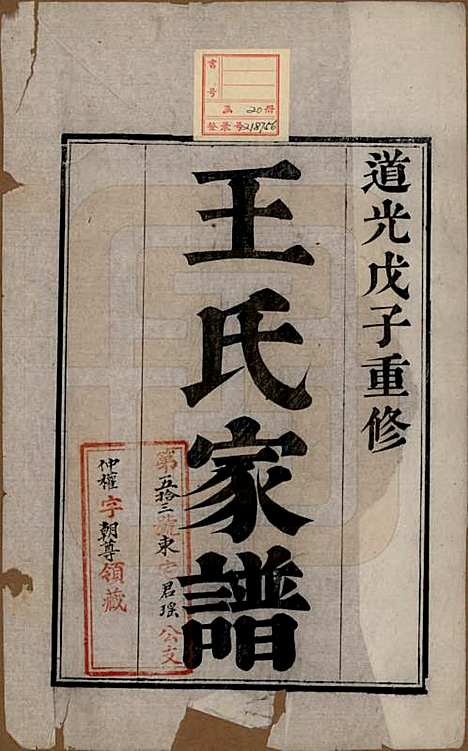 書號
函 20冊
登录号 218756
道光戊子重修
王氏家譜
第五拾三號東宅君瑶公支
仲權字朝尊領藏